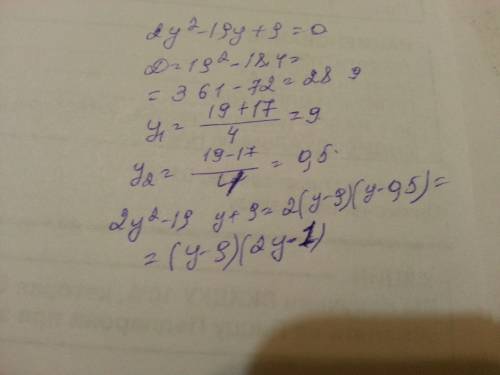 2y²-19y+9=0
D=19²-18·4=
=361-72=289
y₁=(19+17)/4=9
y₂=(19-17)/4=0,5
2y²-19 y+9=2(y-9)(y-0,5)=
=(y-9)(2y-1)